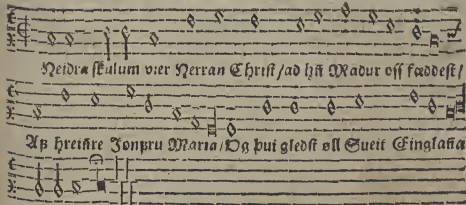 Heidra skulum vier Herran Christ / ad hn̄ Madur oss fæddest /
Aff hreinre Jonpru Maria / Og þui gledst øll Sueit Einglanna